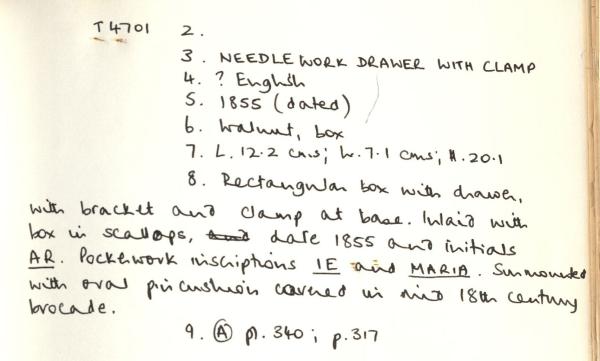 T4701 2.
3. NEEDLEWORK DRAWER WITH CLAMP
4. ? English
5. 1855 (dated)
6. Walnut, box
7. L. 12.2 cms; W. 7.1 cms; H. 20.1
8. Rectangular box with drawer,
with bracket and clamp at base. Inlaid with
box in scallops, and date 1855 and initials
AR. Pokerwork inscriptions IE and MARIA. Surmounted
with oval pincushion covered in mid 18th century
brocade.
9. A pl. 340; p. 317